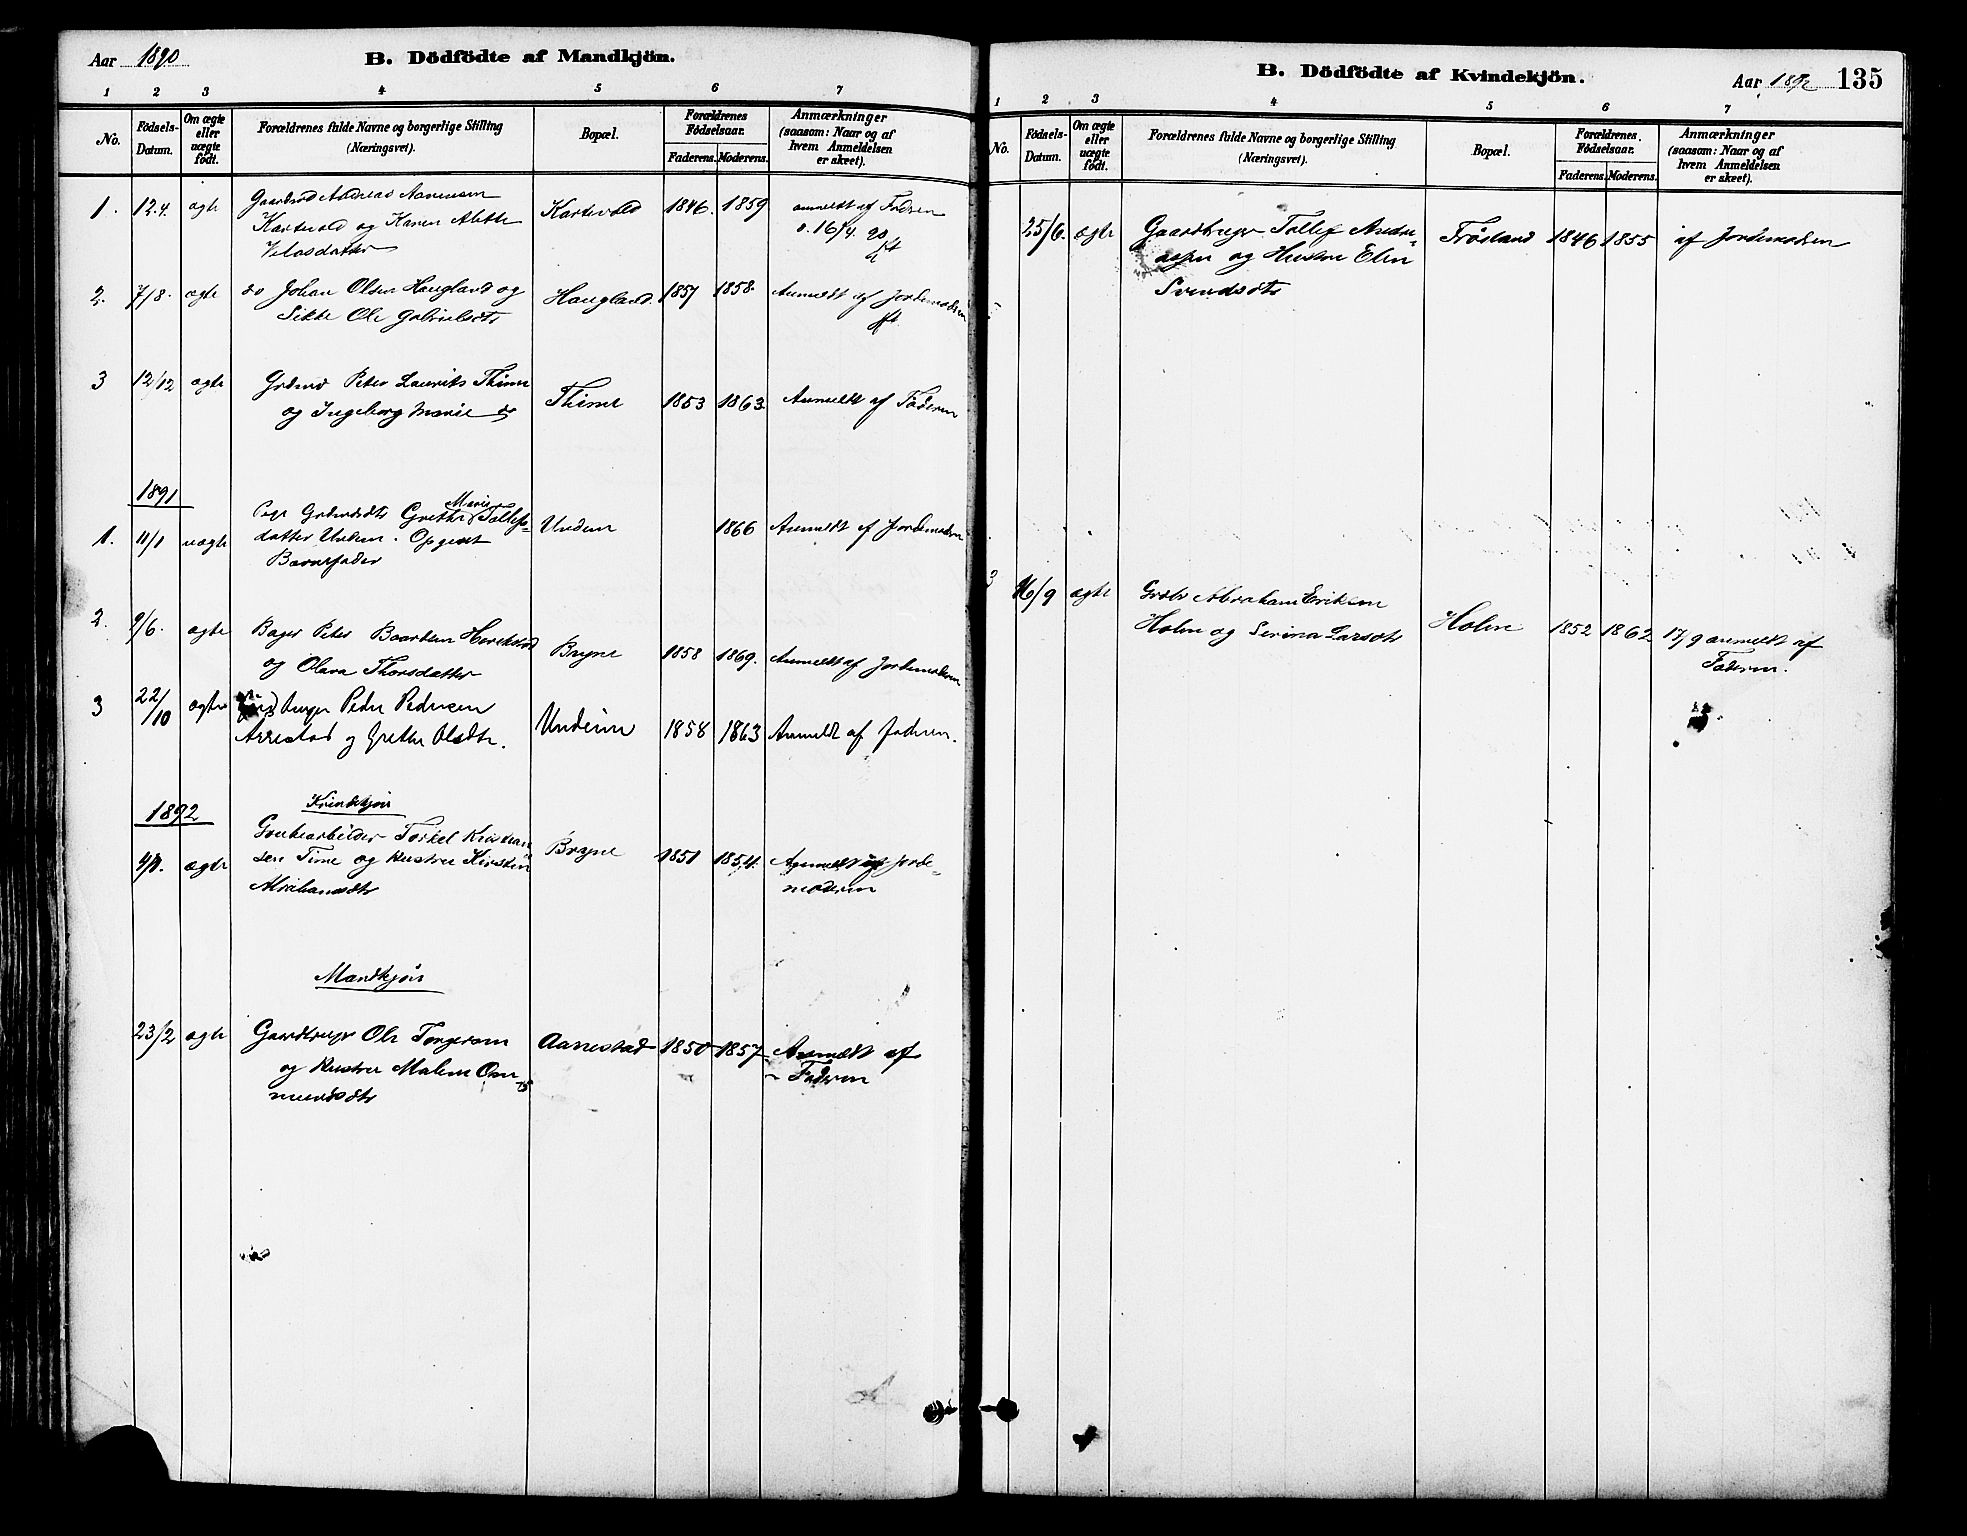 Aar 1890
B. Dödfödte af Mandkjön.
1 2 3 4 5 6 7
No.
Födsels-Datum.
Om ægte eller uægte födt.
Forældrenes fulde Navne og borgerlige Stilling
(Næringsvei).
Bopæl.
Forældrenes Födselsaar.
Faderens. Moderens.
Anmærkninger
(saasom: Naar og af
hvem Anmeldelsen
er skeet).
1. 12.4. ægte Andreas Aanensen Kartevold 1846. 1859 anmeldt af Fadren
og Karen 16/4. 90
2. 7/8. ægte do Johan Olsen Haugland og Haugland. 1851 1858. Anmeldt af Jordemodren
Gabrielsdtr
3 12/12 ægte Peter Laurits Thime Thime 1853 1863. Anmeldt af Faderen
og Ingeborg Marie
1891
Marie
1. 11/1 uægte Pige Grethe Tollefs- Undem 1866 Anmeldt af Jordemodren
datter Undem. Opgivet
Barnefader
2. 9/6. ægte Bager Peter Baardsen Bryne 1858 1869. Anmeldt af Jordemoderen
og Olava Thorsdatter
3 22/10 ægte Peder Pedersen Undeim 1858 1863 Anmeldt af Faderen.
og Grethe Olsdtr.
1892
Kvindekjön
ægte Torkel Kristian- Bryne 1851 1854. Anmeldt af Jorde-
sen Time og Hustru Kirsten moderen
Abrahamsdtr
Mandkjön
23/2 ægte Gaardbruger Ole Torgersen Aanestad 1850 1857 Anmeldt af
og Hustru Malene Os- Faderen
mundsdtr
B. Dödfödte af Kvindekjön.
Aar 1892 135
1 2 3 4 5 6 7
No.
Födsels-Datum.
Om ægte eller uægte födt.
Forældrenes fulde Navne og borgerlige Stilling
(Næringsvei).
Bopæl.
Forældrenes Födselsaar.
Faderens. Moderens.
Anmærkninger
(saasom: Naar og af
hvem Anmeldelsen
er skeet).
25/6. ægte Gaardbruger Tollef Andre- Fröiland 1846 1855 af Jordemodren
asen og Hustru Elen
Svendsdtr
3 16/9 ægte Grdbr Abraham Eriksen
Holen og Serina Larsdtr Holen 1852 1862 17/9 anmeldt af
Faderen.